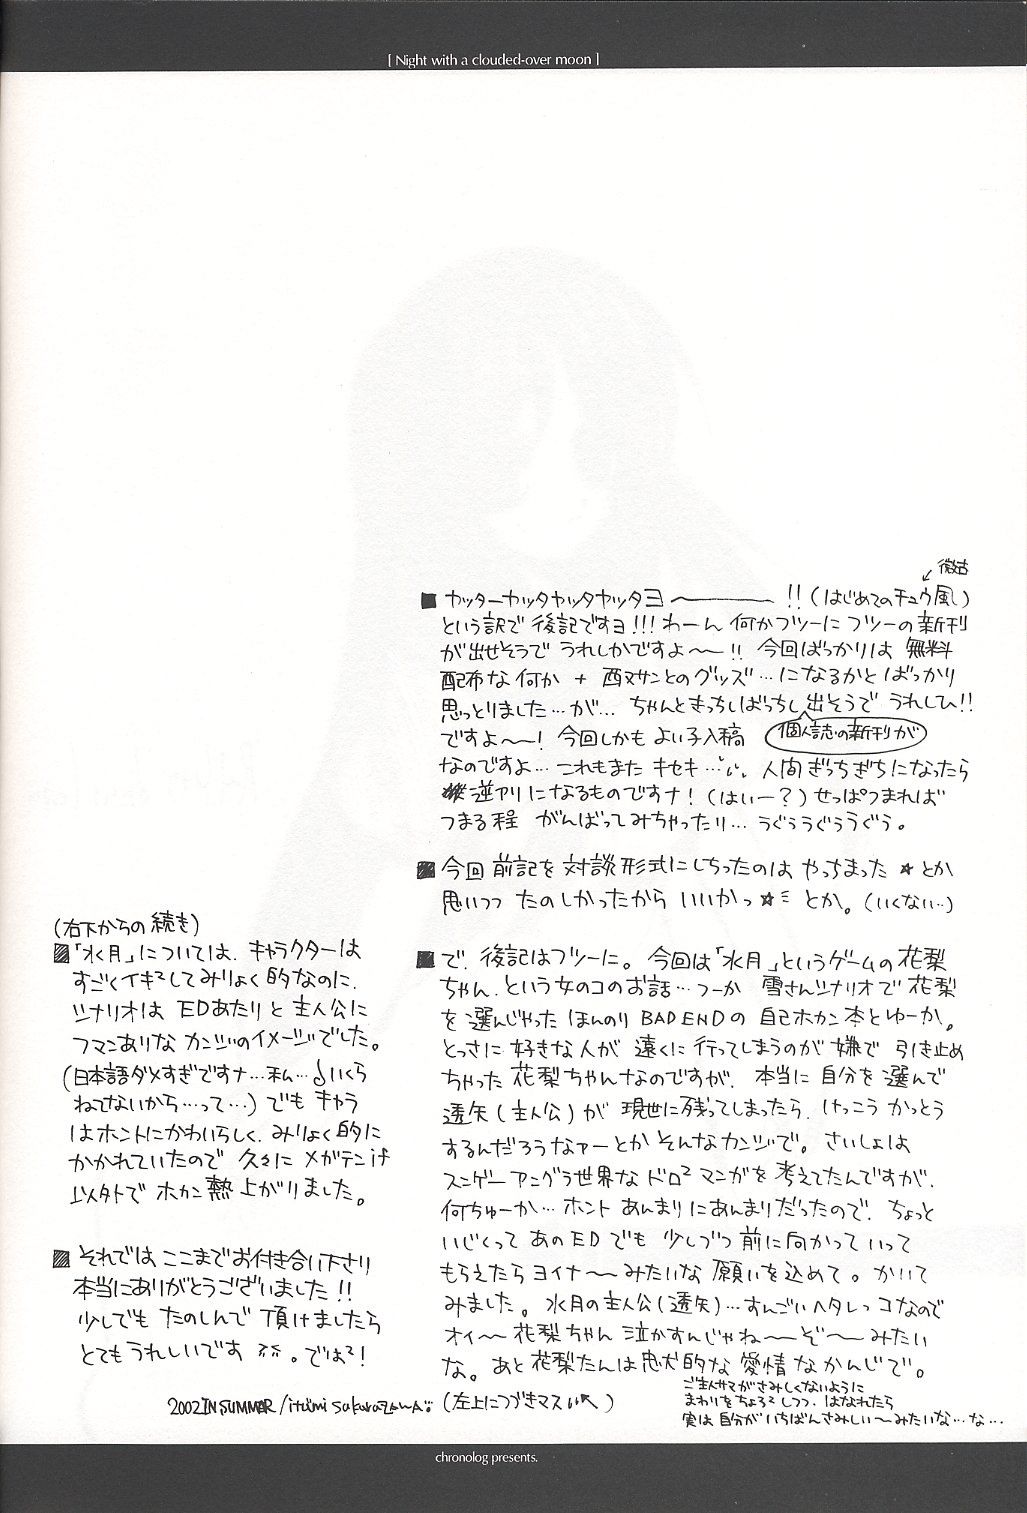 [ Night with a clouded-over moon ]
微古
■ ヤッターヤッタヤッタヤッタヨ〜!!(はじめてのチュウ風)
という訳で 後記ですヨ!!! わーん 何かフツーに フツーの新刊
が出せそうで うれしかですよ〜!! 今回ばっかりは 無料
配布な何か + 酉ヌサンとのグッズ…になるかとばっかり
思っとりました…が… ちゃんときっちしばっちし出そうで うれしひ!!
個人誌の新刊が
ですよ〜! 今回しかも よい子入稿
なのですよ… これもまた キセキ… 人間ぎっちぎちになったら
逆アリになるものですナ!(はぃー?)せっぱつまれば
つまる程 がんばってみちゃったり… うぐぅうぐぅうぐぅ。
■ 今回 前記を 対談形式にしちったのは やっちまった☆とか
思いつつ たのしかったから いいかっ☆ミ とか。(いくない…)
■ で、後記はフツーに。今回は「水月」というゲームの花梨
ちゃん、という女のコのお話…つーか 雪さんシナリオで花梨
を選んじゃった ほんのり BAD ENDの 自己ホカン本とゆーか。
とっさに 好きな人が 遠くに行ってしまうのが嫌で 引き止め
ちゃった 花梨ちゃんなのですが、本当に自分を選んで
透矢(主人公)が 現世に残ってしまったら、けっこう かっとう
するんだろうなァーとか そんなカンジで。さいしょは
スンゲー アングラ世界な ドロ²マンガを考えてたんですが、
何ちゅーか… ホント あんまりにあんまりだったので、ちょっと
いじくって あのEDでも 少しづつ 前に向かって いって
もらえたら ヨイナ〜みたいな 願いを込めて。かいて
みました。水月の主人公(透矢)…すんごいヘタレっコなので
オイ〜花梨ちゃん 泣かすんじゃね〜ぞ〜みたい
な。あと花梨たんは忠犬的な 愛情なかんじで。
ご主人サマがさみしくないように
まわりをちょろ²しつつ、はなれたら
実は自分がいちばんさみしい〜みたいな…な…
(左上につづきマス↖)
(右下からの続き)
■「水月」については、キャラクターは
すごくイキ²してみりょく的なのに、
シナリオは EDあたりと主人公に
フマンありな カンジのイメージでした。
(日本語ダメすぎですナ…私… いくら
ねてないから…って…)でも キャラ
はホントにかわいらしく、みりょく的に
かかれていたので 久々に メガテンif
以外で ホカン熱 上がりました。
■ それでは ここまでお付き合い下さり
本当にありがとうございました!!
少しでも たのしんで 頂けましたら
とてもうれしいです。では²!
2002 IN SUMMER/itsumi sakurazawa
chronolog presents.